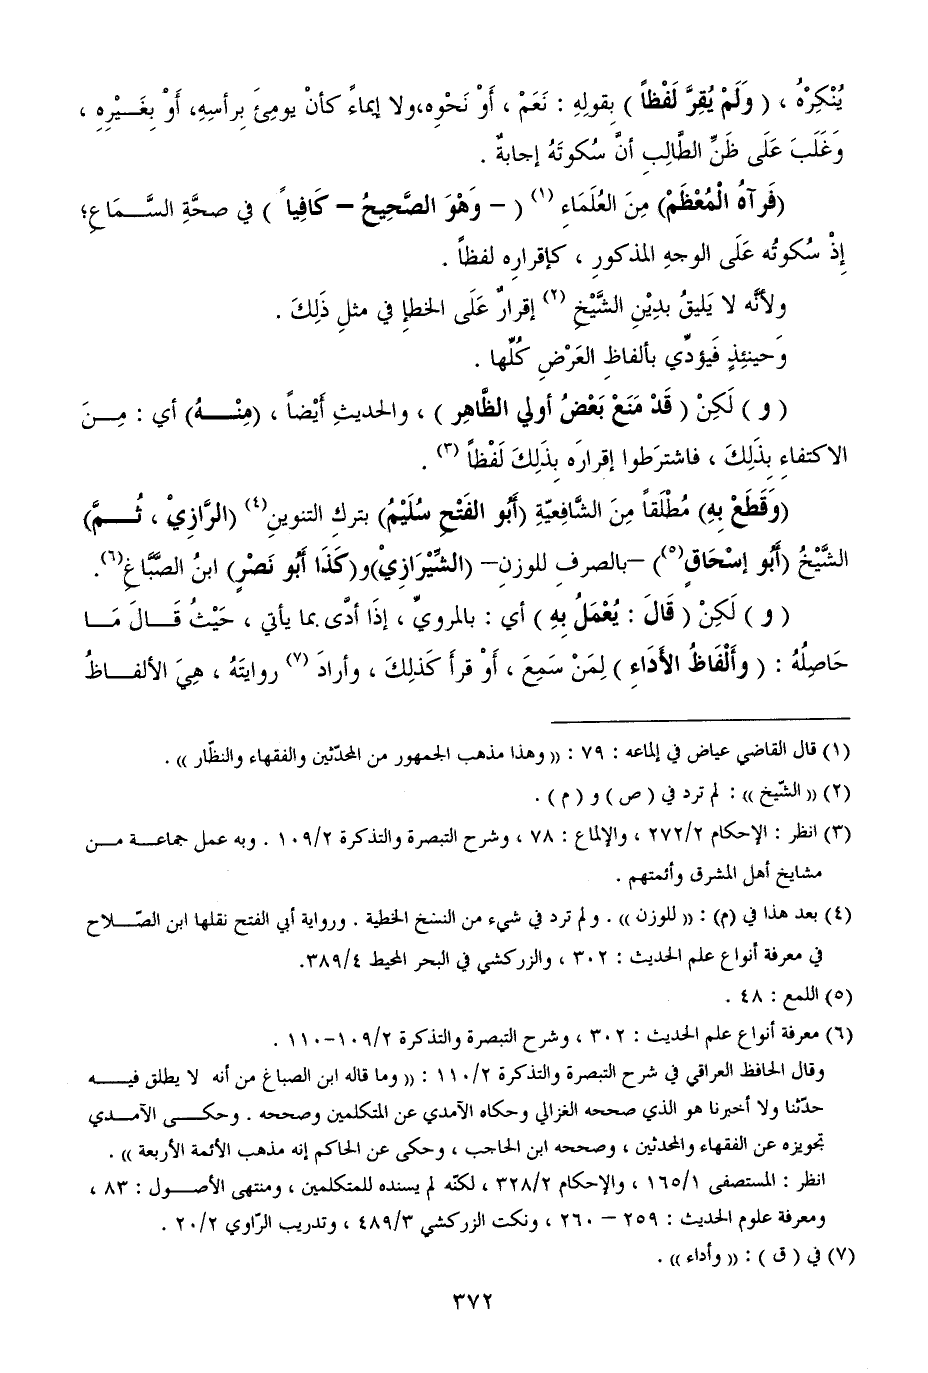 يُنْكِرْهُ ، ( وَلَمْ يُقِرَّ لَفْظاً ) بِقولِهِ : نَعَمْ ، أَوْ نَحْوِه،ولا إيماءً كأنْ يومِئَ بِرأسِهِ، أَوْ بِغَيْرِهِ ،
وَغَلَبَ عَلَى ظَنِّ الطَّالِبِ أنَّ سُكوتَهُ إجابةٌ .
(فَرآهُ الْمُعْظَمْ) مِنَ العُلَمَاءِ (١) ( – وَهْوَ الصَّحِيحُ – كَافِياً ) في صحَّةِ السَّمَاعِ؛
إذْ سُكوتُه عَلَى الوجهِ المذكورِ ، كإقرارِه لفظاً .
ولأنَّه لا يَليقُ بدِيْنِ الشَّيْخِ (٢) إقرارٌ عَلَى الخطإِ في مثلِ ذَلِكَ .
وَحينئِذٍ فَيؤدِّي بألفاظِ العَرْضِ كُلِّها .
( و ) لَكِنْ ( قَدْ مَنَعْ بَعْضُ أولي الظَّاهِرِ ) ، والحديثِ أَيْضاً ، (مِنْهُ) أي : مِنَ
الاكتفاءِ بِذَلِكَ ، فاشترَطوا إقرارَه بِذَلِكَ لَفْظاً (٣) .
(وَقَطَعْ بِهِ) مُطْلَقاً مِنَ الشَّافعيّةِ (أَبُو الفَتْحِ سُلَيْمُ) بتركِ التنوينِ(٤) (الرَّازِيْ ، ثُمَّ)
الشَّيْخُ (أَبُو إِسْحَاقٍ(٥)) –بالصرفِ للوزنِ– (الشِّيْرَازِيْ)و(كَذَا أبُو نَصْرٍ) ابنُ الصَّبَّاغِ(٦).
( و ) لَكِنْ ( قَالَ : يُعْمَلُ بِهِ ) أي : بالمرويِّ ، إذَا أدَّى بما يأتي ، حَيْثُ قَالَ مَا
حَاصِلُهُ : ( وأَلْفَاظُ الأَدَاءِ ) لِمَنْ سَمِعَ ، أَوْ قرأَ كَذلِكَ ، وأرادَ (٧) روايتَهُ ، هِيَ الألفاظُ
(١) قال القاضي عياض في إلماعه : ٧٩ : (( وهذا مذهب الجمهور من المحدّثين والفقهاء والنظّار )) .
(٢) (( الشّيخ )) : لم ترد في ( ص ) و ( م ) .
(٣) انظر : الإحكام ٢٧٢/٢ ، والإلماع : ٧٨ ، وشرح التبصرة والتذكرة ١٠٩/٢ . وبه عمل جماعة من
مشايخ أهل المشرق وأئمتهم .
(٤) بعد هذا في (م) : (( للوزن )) . ولم ترد في شيء من النسخ الخطية . ورواية أبي الفتح نقلها ابن الصّلاح
في معرفة أنواع علم الحديث : ٣٠٢ ، والزركشي في البحر المحيط ٣٨٩/٤.
(٥) اللمع : ٤٨ .
(٦) معرفة أنواع علم الحديث : ٣٠٢ ، وشرح التبصرة والتذكرة ١٠٩/٢-١١٠ .
وقال الحافظ العراقي في شرح التبصرة والتذكرة ١١٠/٢ : (( وما قاله ابن الصباغ من أنه لا يطلق فيه
حدّثنا ولا أخبرنا هو الذي صححه الغزالي وحكاه الآمدي عن المتكلمين وصححه . وحكى الآمدي
تجويزه عن الفقهاء والمحدثين ، وصححه ابن الحاجب ، وحكى عن الحاكم إنه مذهب الأئمة الأربعة )) .
انظر : المستصفى ١٦٥/١ ، والإحكام ٣٢٨/٢ ، لكنّه لم يسنده للمتكلمين ، ومنتهى الأصول : ٨٣ ،
ومعرفة علوم الحديث : ٢٥٩ – ٢٦٠ ، ونكت الزركشي ٤٨٩/٣ ، وتدريب الرّاوي ٢٠/٢ .
(٧) في ( ق ) : (( وأداء )) .
٣٧٢